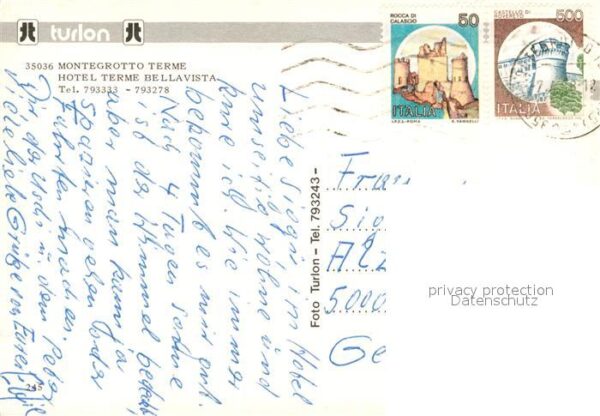 turlon
35036 MONTEGROTTO TERME
HOTEL TERME BELLAVISTA
Tel. 793333 - 793278
ROCCA DI CALASCIO
50
ITALIA
I.P.Z.S.-ROMA
CASTELLO DI ROVERETO
500
ITALIA
Liebe Siggi, im Hotel
umseitig wohne und
kure ich. Wie immer
bekommt es mir gut.
Nach 4 Tagen Sonne
ist der Himmel bedeckt,
aber man kann ja
spazieren gehen oder
Fahrten machen.
Dir, der Uschi u. dem Peter
viele liebe Grüße von Eurer
Foto Turlon - Tel. 793243 -
Frau
5000
privacy protection
Datenschutz
245